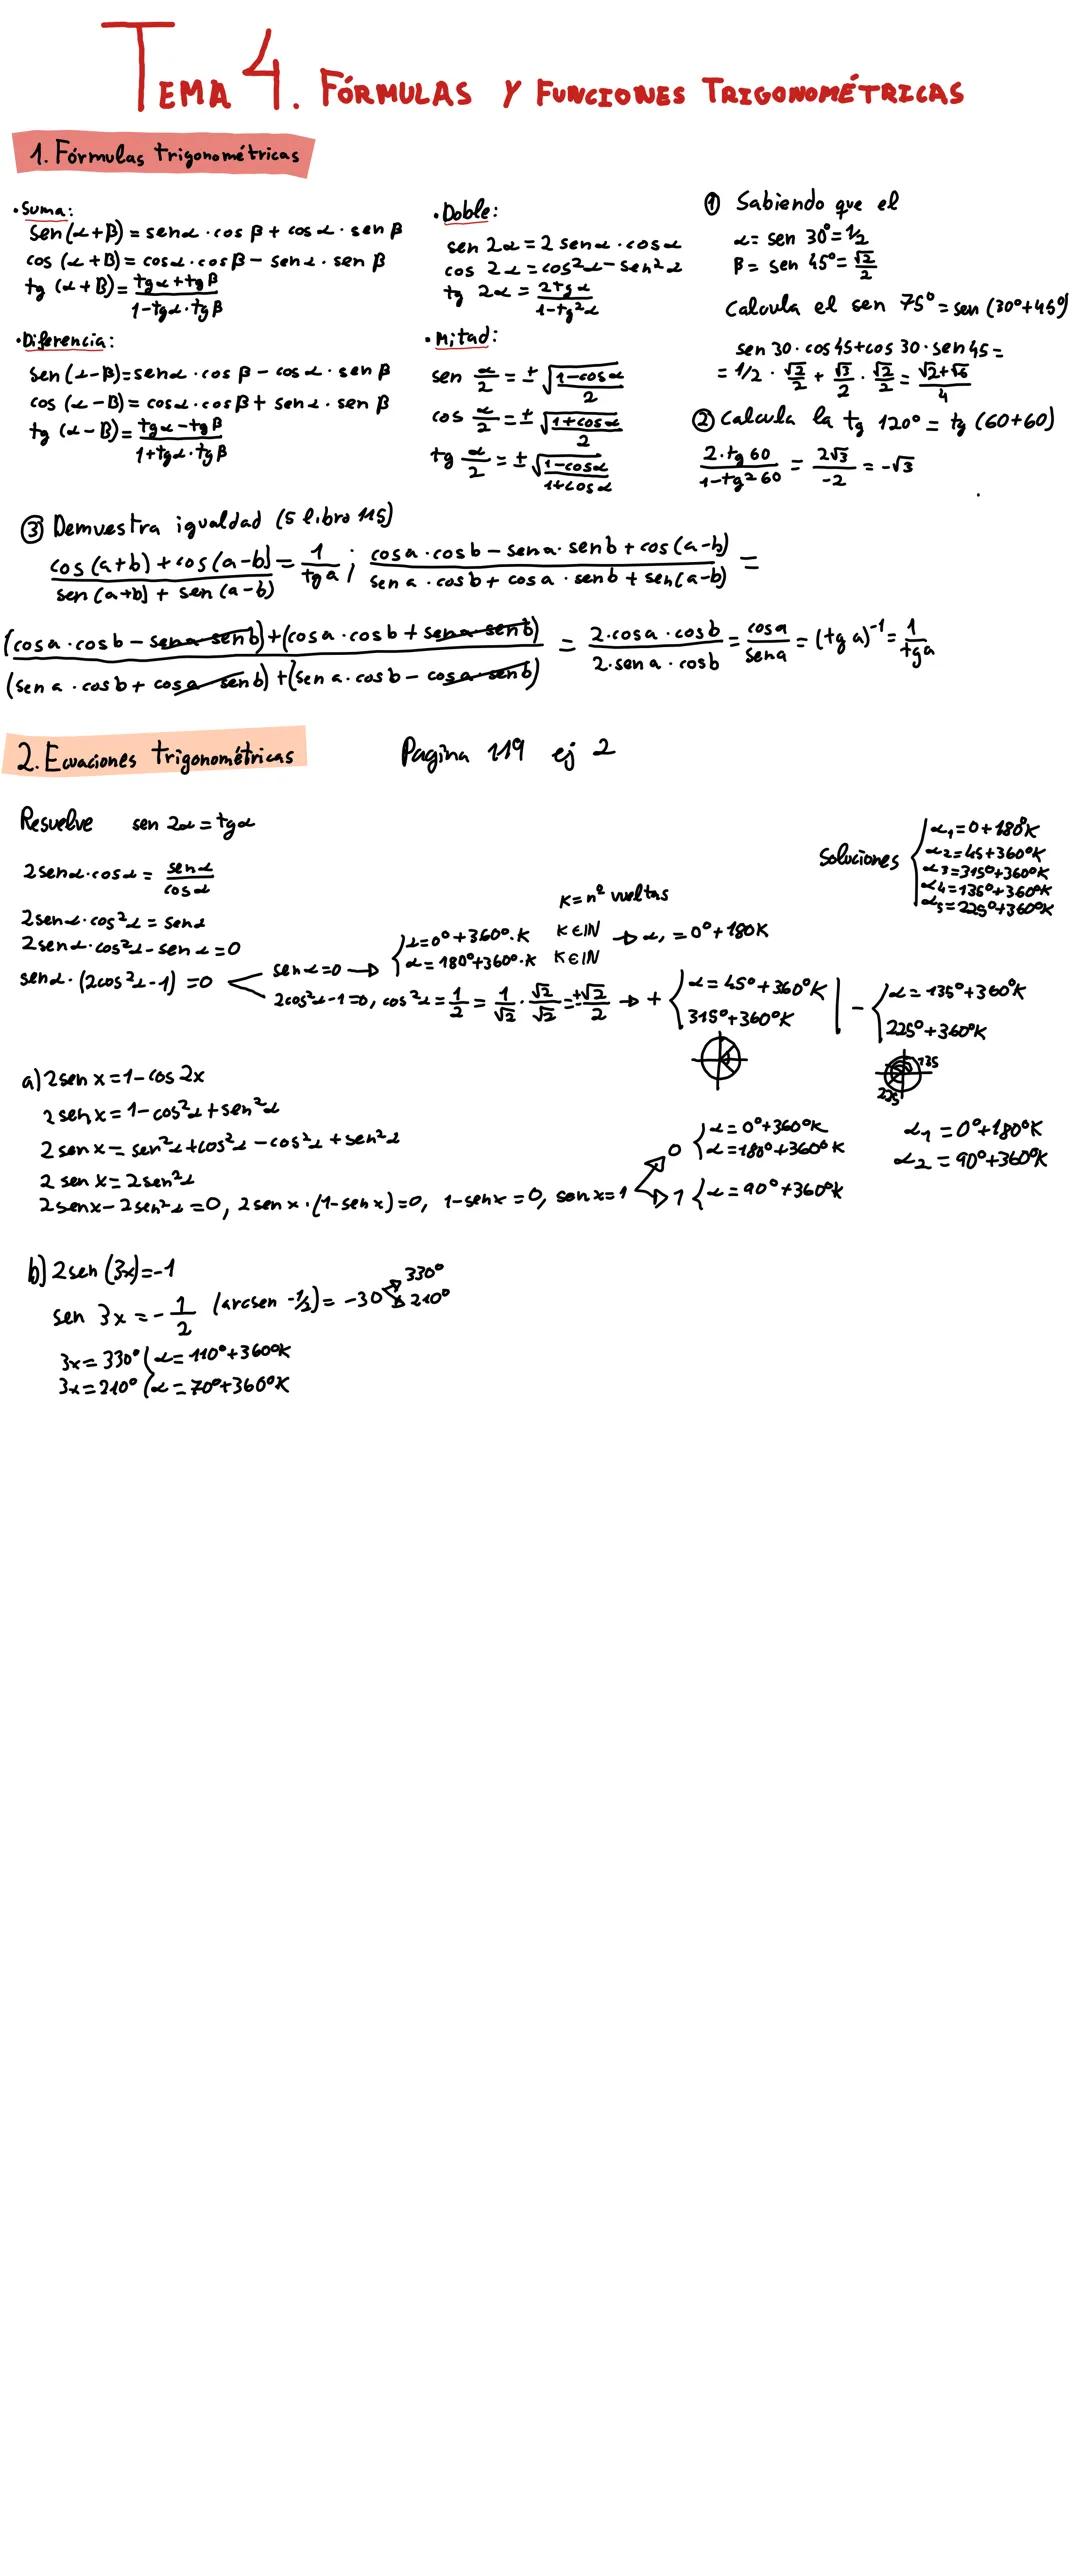 TEMA 4. FÓRMULAS Y FUNCIONES TRIGONOMÉTRICAS
1. Fórmulas trigonométricas
·Suma:
sen(α+β)=senα·cosβ+cosα·senβ
cos(α+β)=cosα·cosβ-senα·senβ
tg(α+β)=(tgα+tgβ)/(1-tgα·tgβ)
·Diferencia:
sen(α-β)=senα·cosβ-cosα·senβ
cos(α-β)=cosα·cosβ+senα·senβ
tg(α-β)=(tgα-tgβ)/(1+tgα·tgβ)
·Doble:
sen 2α=2senα·cosα
cos 2α=cos²α-sen²α
tg 2α=2tgα/(1-tg²α)
·Mitad:
sen α/2=±√((1-cosα)/2)
cos α/2=±√((1+cosα)/2)
tg α/2=±√((1-cosα)/(1+cosα))
① Sabiendo que el
α=sen 30°=1/2
β=sen 45°=√2/2
Calcula el sen 75°=sen(30°+45°)
sen 30·cos45+cos 30·sen45=
=1/2·√2/2+√3/2·√2/2=(√2+√6)/4
② Calcula la tg 120°=tg(60+60)
2·tg 60/(1-tg²60)=2√3/-2=-√3
③ Demuestra igualdad (5 libro 115)
(cos(a+b)+cos(a-b))/(sen(a+b)+sen(a-b))=1/tg a; (cosa·cosb-sena·senb+cos(a-b))/(sen a·cosb+cosa·senb+sen(a-b))=
((cosa·cosb-sena senb)+(cosa·cosb+sena senb))/((sen a·cosb+cosa senb)+(sen a·cosb-cosa·senb))=2·cosa·cosb/2·sen a·cosb=cosa/sena=(tg a)⁻¹=1/tga
2. Ecuaciones trigonométricas
Pagina 119 ej 2
Resuelve sen 2α=tgα
2senα·cosα=senα/cosα
2senα·cos²α=senα
2senα·cos²α-senα=0
senα·(2cos²α-1)=0
senα=0→
α=0°+360°·K K∈IN
α=180°+360°·K K∈IN
K=nº vueltas
→α₁=0°+180K
2cos²α-1=0, cos²α=1/2=1/√2·√2/√2=±√2/2→+
α=45°+360°K
315°+360°K
-
α=135°+360°K
225°+360°K
135
225
Soluciones
α₁=0+180°K
α₂=45+360°K
α₃=315°+360°K
α₄=135°+360°K
α₅=225°+360°K
a)2sen x=1-cos 2x
2sen x=1-cos²α+sen²α
2 sen x=sen²α+cos²α-cos²α+sen²α
2 sen x=2sen²α
2senx-2sen²α=0, 2senx·(1-senx)=0, 1-senx=0, senx=1
0
α=0°+360°K
α=180°+360°K
1 {α=90°+360°K
α₁=0°+180°K
α₂=90°+360°K
b)2sen(3x)=-1
sen 3x=-1/2 (arcsen -1/2)=-30
330°
210°
3x=330° α=110°+360°K
3x=210° α=70°+360°K